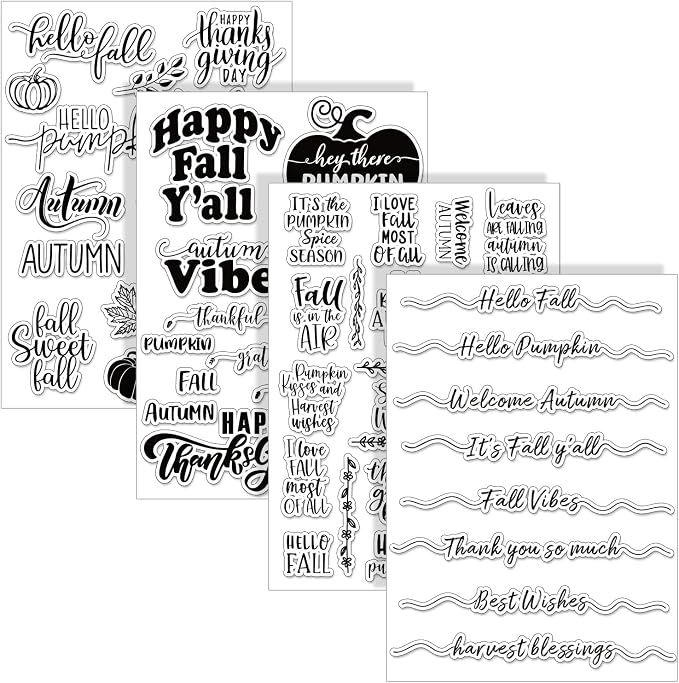 hello fall
HAPPY
thanks
giving
DAY
HELLO
Autumn
AUTUMN
fall
Sweet
fall
Happy
Fall
Y'all
hey there
PUMPKIN
autumn
thankful
PUMPKIN
FALL
AUTUMN
IT'S THE
PUMPKIN
Spice
SEASON
I LOVE
FALL
MOST
OF ALL
Welcome
AUTUMN
Leaves
ARE FALLING
autumn
IS CALLING
Fall
is in the
AIR
Pumpkin
Kisses and
Harvest
wishes
I love
FALL
most
OF ALL
HELLO
FALL
Hello Fall
Hello Pumpkin
Welcome Autumn
It's Fall y'all
Fall Vibes
Thank you so much
Best Wishes
harvest blessings